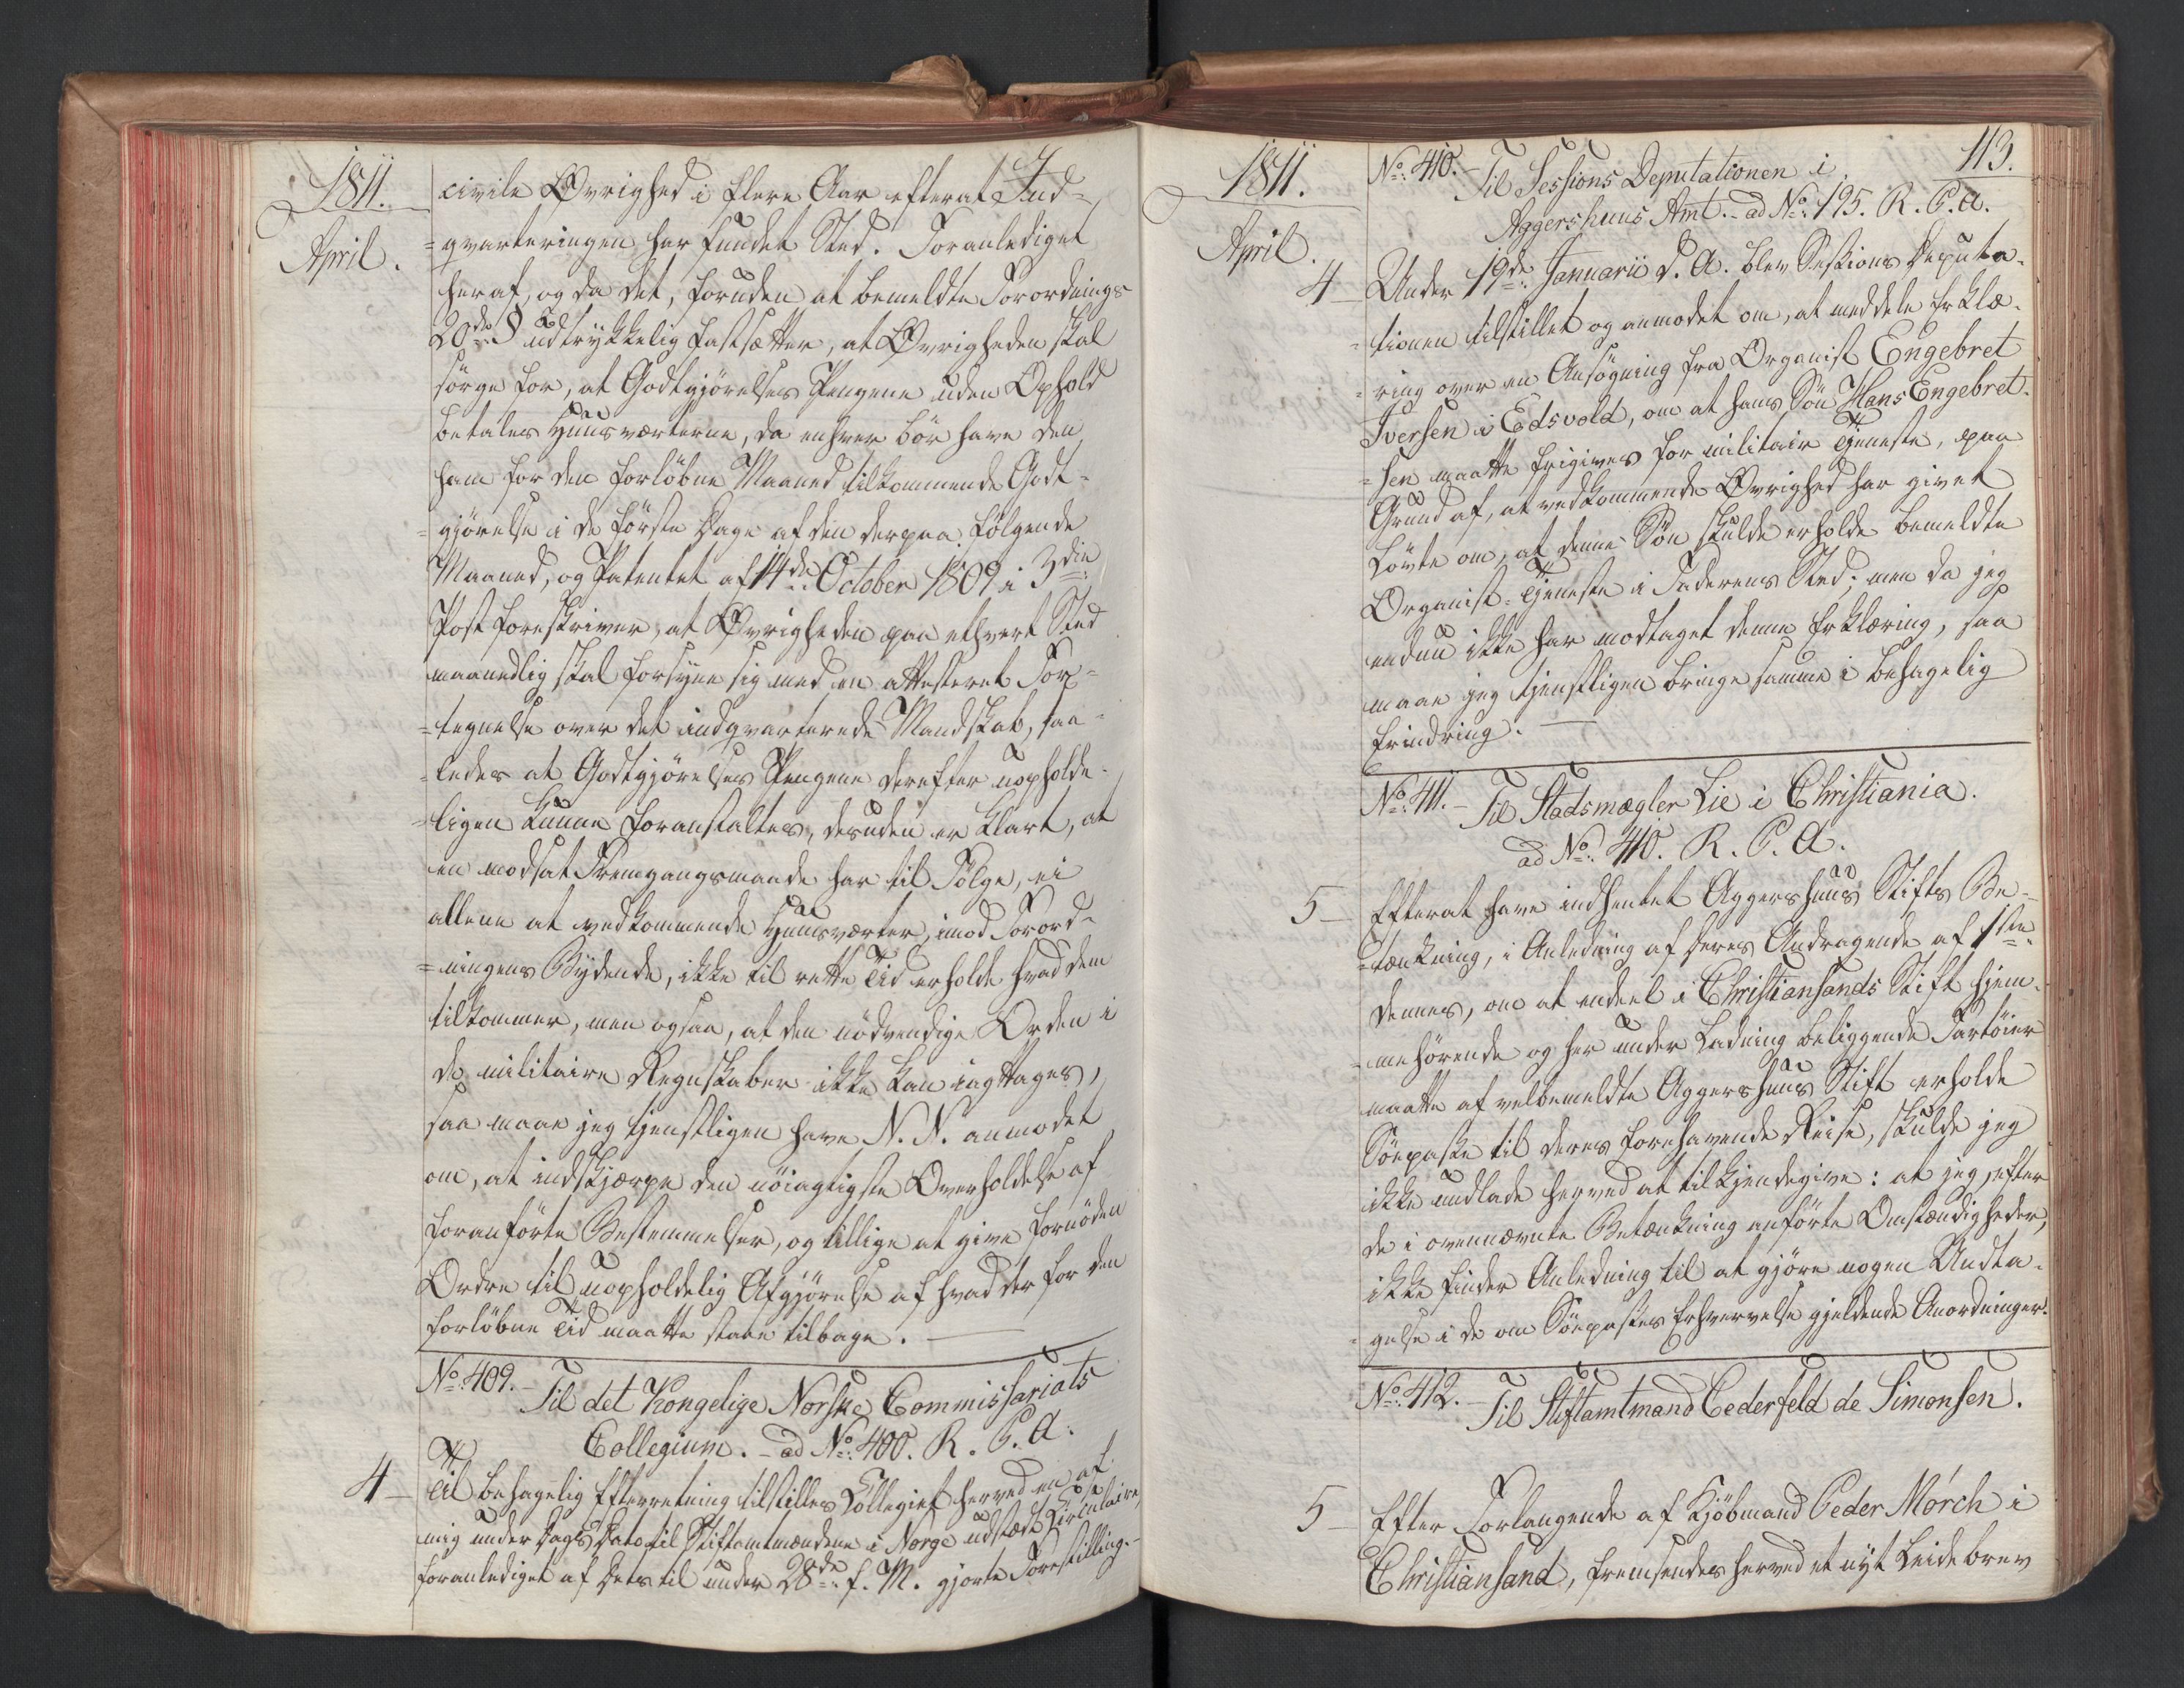 1811.
April.
civile Øvrighed i flere Aar efterat Ind-
=qvarteringen har fundet Sted. Foranlediget
heraf, og da det, foruden at bemeldte Forordnings
20de § udtrykkelig fastsætter, at Øvrigheden skal
sörge for, at Godtgjörelses Pengene uden Ophold
betales Huusværterne, da enhver bör have den
ham for den forløbne Maaned tilkommende Godt-
=gjörelse i de förste Dage af den derpaa følgende
Maaned, og Patentet af 14de October 1809 i 3die
Post foreskriver, at Øvrigheden paa ethvert Sted
maanedlig skal forsyne sig med en attesteret For-
=tegnelse over det indqvarterede Mandskab, saa-
=ledes at Godtgjörelses Pengene derefter uopholde-
=ligen kunne foranstaltes, desuden er klart, at
en modsat Fremgangsmaade har til Følge, ei
allene at vedkommende Huusværter, imod Forord-
=ningens Bydende, ikke til rette Tid erholde hvad dem
tilkommer, men ogsaa, at den nödvendige Orden i
de militaire Regnskaber ikke kan iagttages,
saa maae jeg tjenstligen have N. N. anmodet
om, at indskjærpe den nöiagtigste Overholdelse af
foranförte Bestemmelser, og tillige at give fornöden
Ordre til uopholdelig Afgjörelse af hvad der for den
forløbne Tid maatte staae tilbage.
No. 409. Til det Kongelige Norske Commissariats
Collegium. - ad No. 400. R. P. A.
4 - Til behagelig Efterretning tilstilles Collegiet herved en af
mig under Dags Dato til Stiftamtmændene i Norge udstædt Circulaire,
foranlediget af Dets til under 28de f. M. gjorte Forestilling.-
1811.
April.
113.
No. 410. - Til Sessions Deputationen i
Aggershuus Amt. - ad No. 195. R. P. A.
4 - Under 19de Januarii d. A. blev Sessions Deputa-
=tionen tilstillet og anmodet om, at meddele Erklæ-
=ring over en Ansögning fra Organist Engebret
Iversen i Edsvold, om at hans Sön Hans Engebret-
=sen maatte frigives for militair Tjeneste, paa
Grund af, at vedkommende Øvrighed har givet
Løvte om, at denne Sön skulde erholde bemeldte
Organist-Tjeneste i Faderens Sted; men da jeg
endnu ikke har modtaget denne Erklæring, saa
maae jeg tjenstligen bringe samme i behagelig
Erindring.
No. 411. - Til Stadsmægler Lie i Christiania.
ad No. 410. R. P. A.
5 - Efterat have indhentet Aggershuus Stifts Be-
=tænkning, i Anledning af Deres Andragende af 1ste
dennes, om at endeel i Christiansands Stift hjem-
=mehörende og her under Ladning beliggende Fartöier
maatte af velbemeldte Aggershuus Stift erholde
Söepasse til deres forehavende Reise, skulde jeg
ikke undlade herved at tilkjendegive: at jeg, efter
de i ovennævnte Betænkning anförte Omstændigheder,
ikke finder Anledning til at gjöre nogen Undta-
=gelse i de om Söepasses Erhvervelse gjeldende Anordninger.
No. 412. - Til Stiftamtmand Cederfeld de Simonsen.
5 - Efter Forlangende af Kjöbmand Peder Mörch i
Christiansand, fremsendes herved et nyt Leidebrev